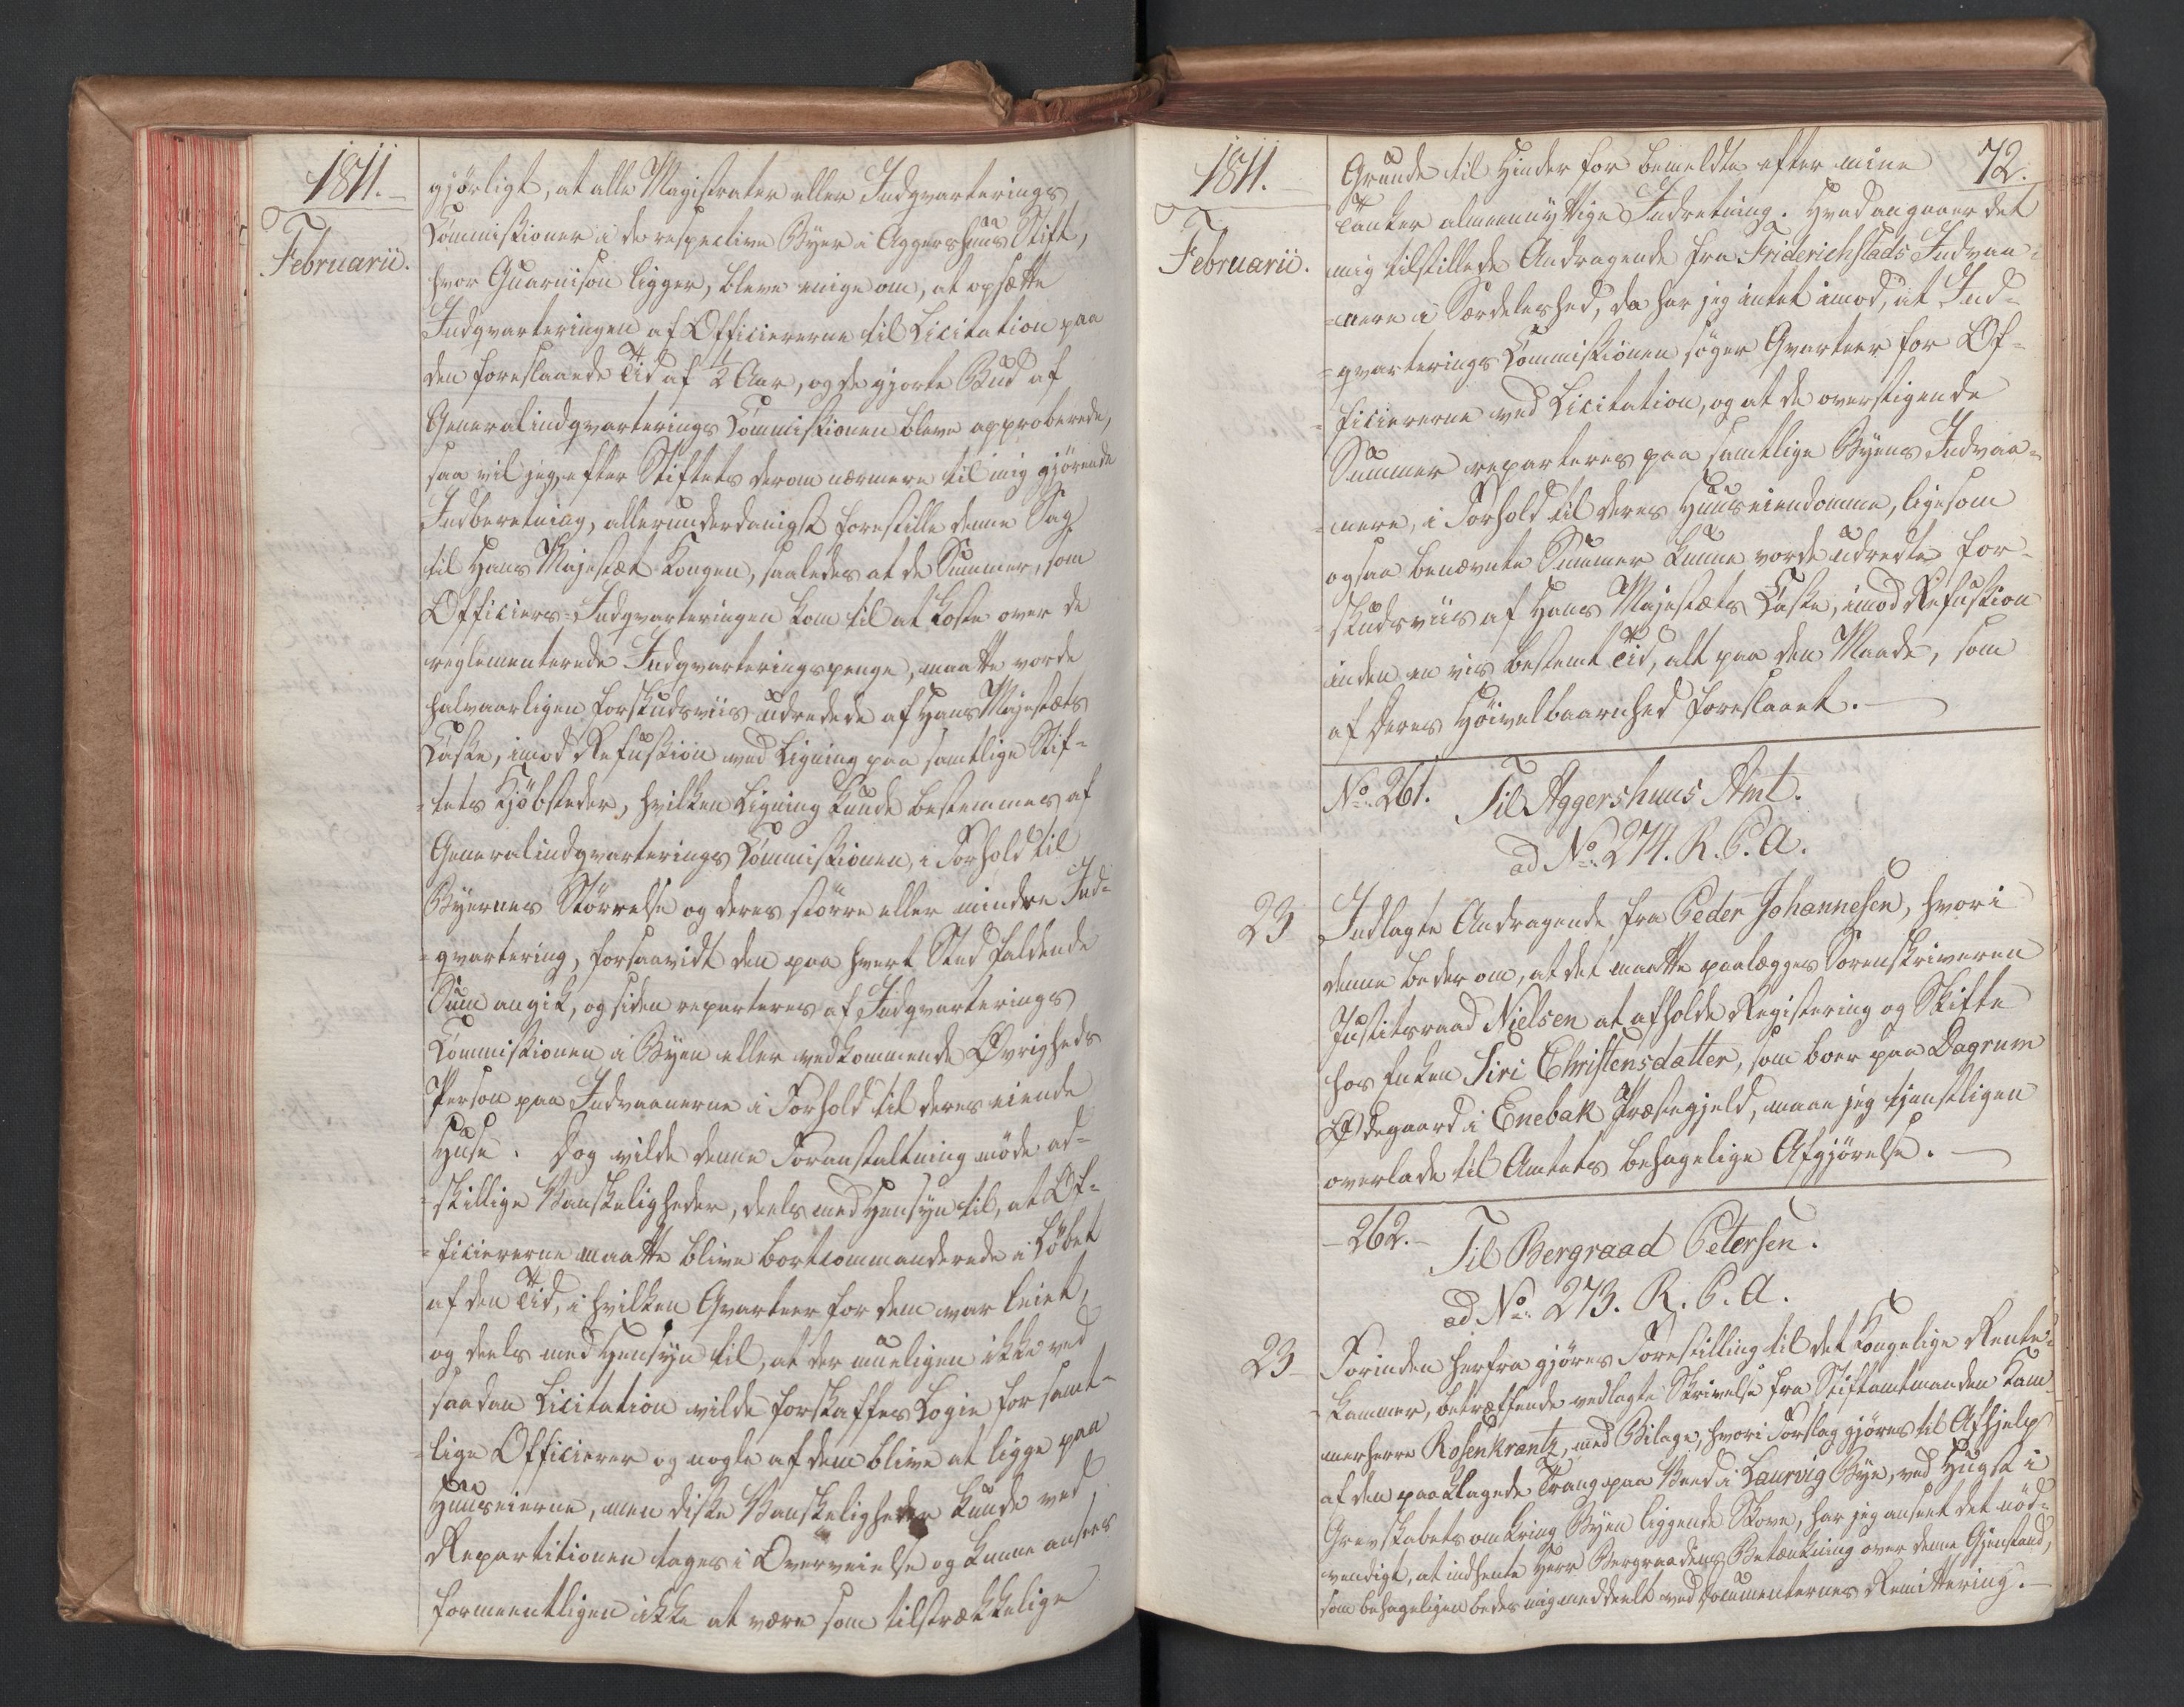 1811.
Februarii.
gjörligt, at alle Magistrater eller Indqvarterings
Commissioner i de respective Byer i Aggershuus Stift,
hvor Guarnison ligger, bleve enige om, at opsætte
Indqvarteringen af Officiererne til Licitation paa
den foreslaaede Tid af 1/2 Aar, og de gjorte Bud af
Generalindqvarterings Commissionen bleve approberede,
saa vil jeg, efter Stiftets derom nærmere til mig gjørende
Indberetning, allerunderdanigst forestille denne Sag
til Hans Majestæt Kongen, saaledes at de Summer, som
Officiers-Indqvarteringen kom til at koste over de
reglementerede Indqvarteringspenge, maatte vorde
halvaarligen forskudsviis udredede af Hans Majestæts
Casse, imod Refussion ved Ligning paa samtlige Stif-
=tets Kjöbsteder, hvilken Ligning kunde bestemmes af
Generalindqvarterings Commissionen, i Forhold til
Byernes Störrelse og deres större eller mindre Ind-
=qvartering, forsaavidt den paa hvert Sted faldende
Sum angik, og siden reparteres af Indqvarterings
Commissionen i Byen eller vedkommende Øvrigheds
Person paa Indvaanerne i Forhold til deres eiende
Huse. Dog vilde denne Foranstaltning möde ad-
=skillige Vanskeligheder, deels med Hensyn til, at Of-
=ficiererne maatte blive bortcommanderede i Löbet
af den Tid, i hvilken Qvarteer for dem var leiet,
og deels med Hensyn til, at der mueligen ikke ved
saadan Licitation vilde forskaffes Logie for samt-
lige Officierer og nogle af dem blive at ligge paa
Huuseierne, men disse Vanskeligheder kunde ved
Repartitionen tages i Overveielse og kunne ansees
formeentligen ikke at være som tilstrækkelige
1811.
Februarii.
72.
Grunde til Hinder for bemeldte efter mine
Tanker almeennyttige Indretning. Hvad angaaer det
mig tilstillede Andragende fra Friderichstads Indvaa-
=nere i Særdeleshed, da har jeg intet imod, at Ind-
=qvarterings Commissionen söger Qvarteer for Of-
=ficiererne ved Licitation, og at de overstigende
Summer reparteres paa samtlige Byens Indvaa-
=nere, i Forhold til deres Huuseiendomme, ligesom
ogsaa benævnte Summer kunne vorde udredte for-
=skudsviis af Hans Majestæts Casse, imod Refussion
inden en vis bestemt Tid, alt paa den Maade, som
af Deres Höivelbaarnhed foreslaaet.
No. 261. Til Aggershuus Amt.
ad No. 274. R. P. A.
23 Indlagte Andragende fra Peder Johannesen, hvori
denne beder om, at det maatte paalægges Sorenskriveren
Justitsraad Nielsen at afholde Registering og Skifte
hos Enken Siri Christensdatter, som boer paa Dagrum
Ødegaard i Enebak Præstegjeld, maae jeg tjenstligen
overlade til Amtets behagelige Afgjörelse.
-262.- Til Bergraad Petersen.
ad No. 273. R. P. A.
23 Forinden herfra gjöres Forestilling til det Kongelige Rente-
kammer, betræffende vedlagte Skrivelse fra Stiftamtmanden Kam-
merherre Rosenkrantz, med Bilage, hvori Forslag gjöres til Afhjelp
af den paaklagede Trang paa Veed i Laurvig Bye, ved Hugst i
Grevskabets omkring Byen liggende Skove, har jeg anseet det nöd-
vendigt, at indhente Herr Bergraadens Betænkning over denne Gjenstand,
som behageligen bedes mig meddeelt ved Documenternes Remittering.